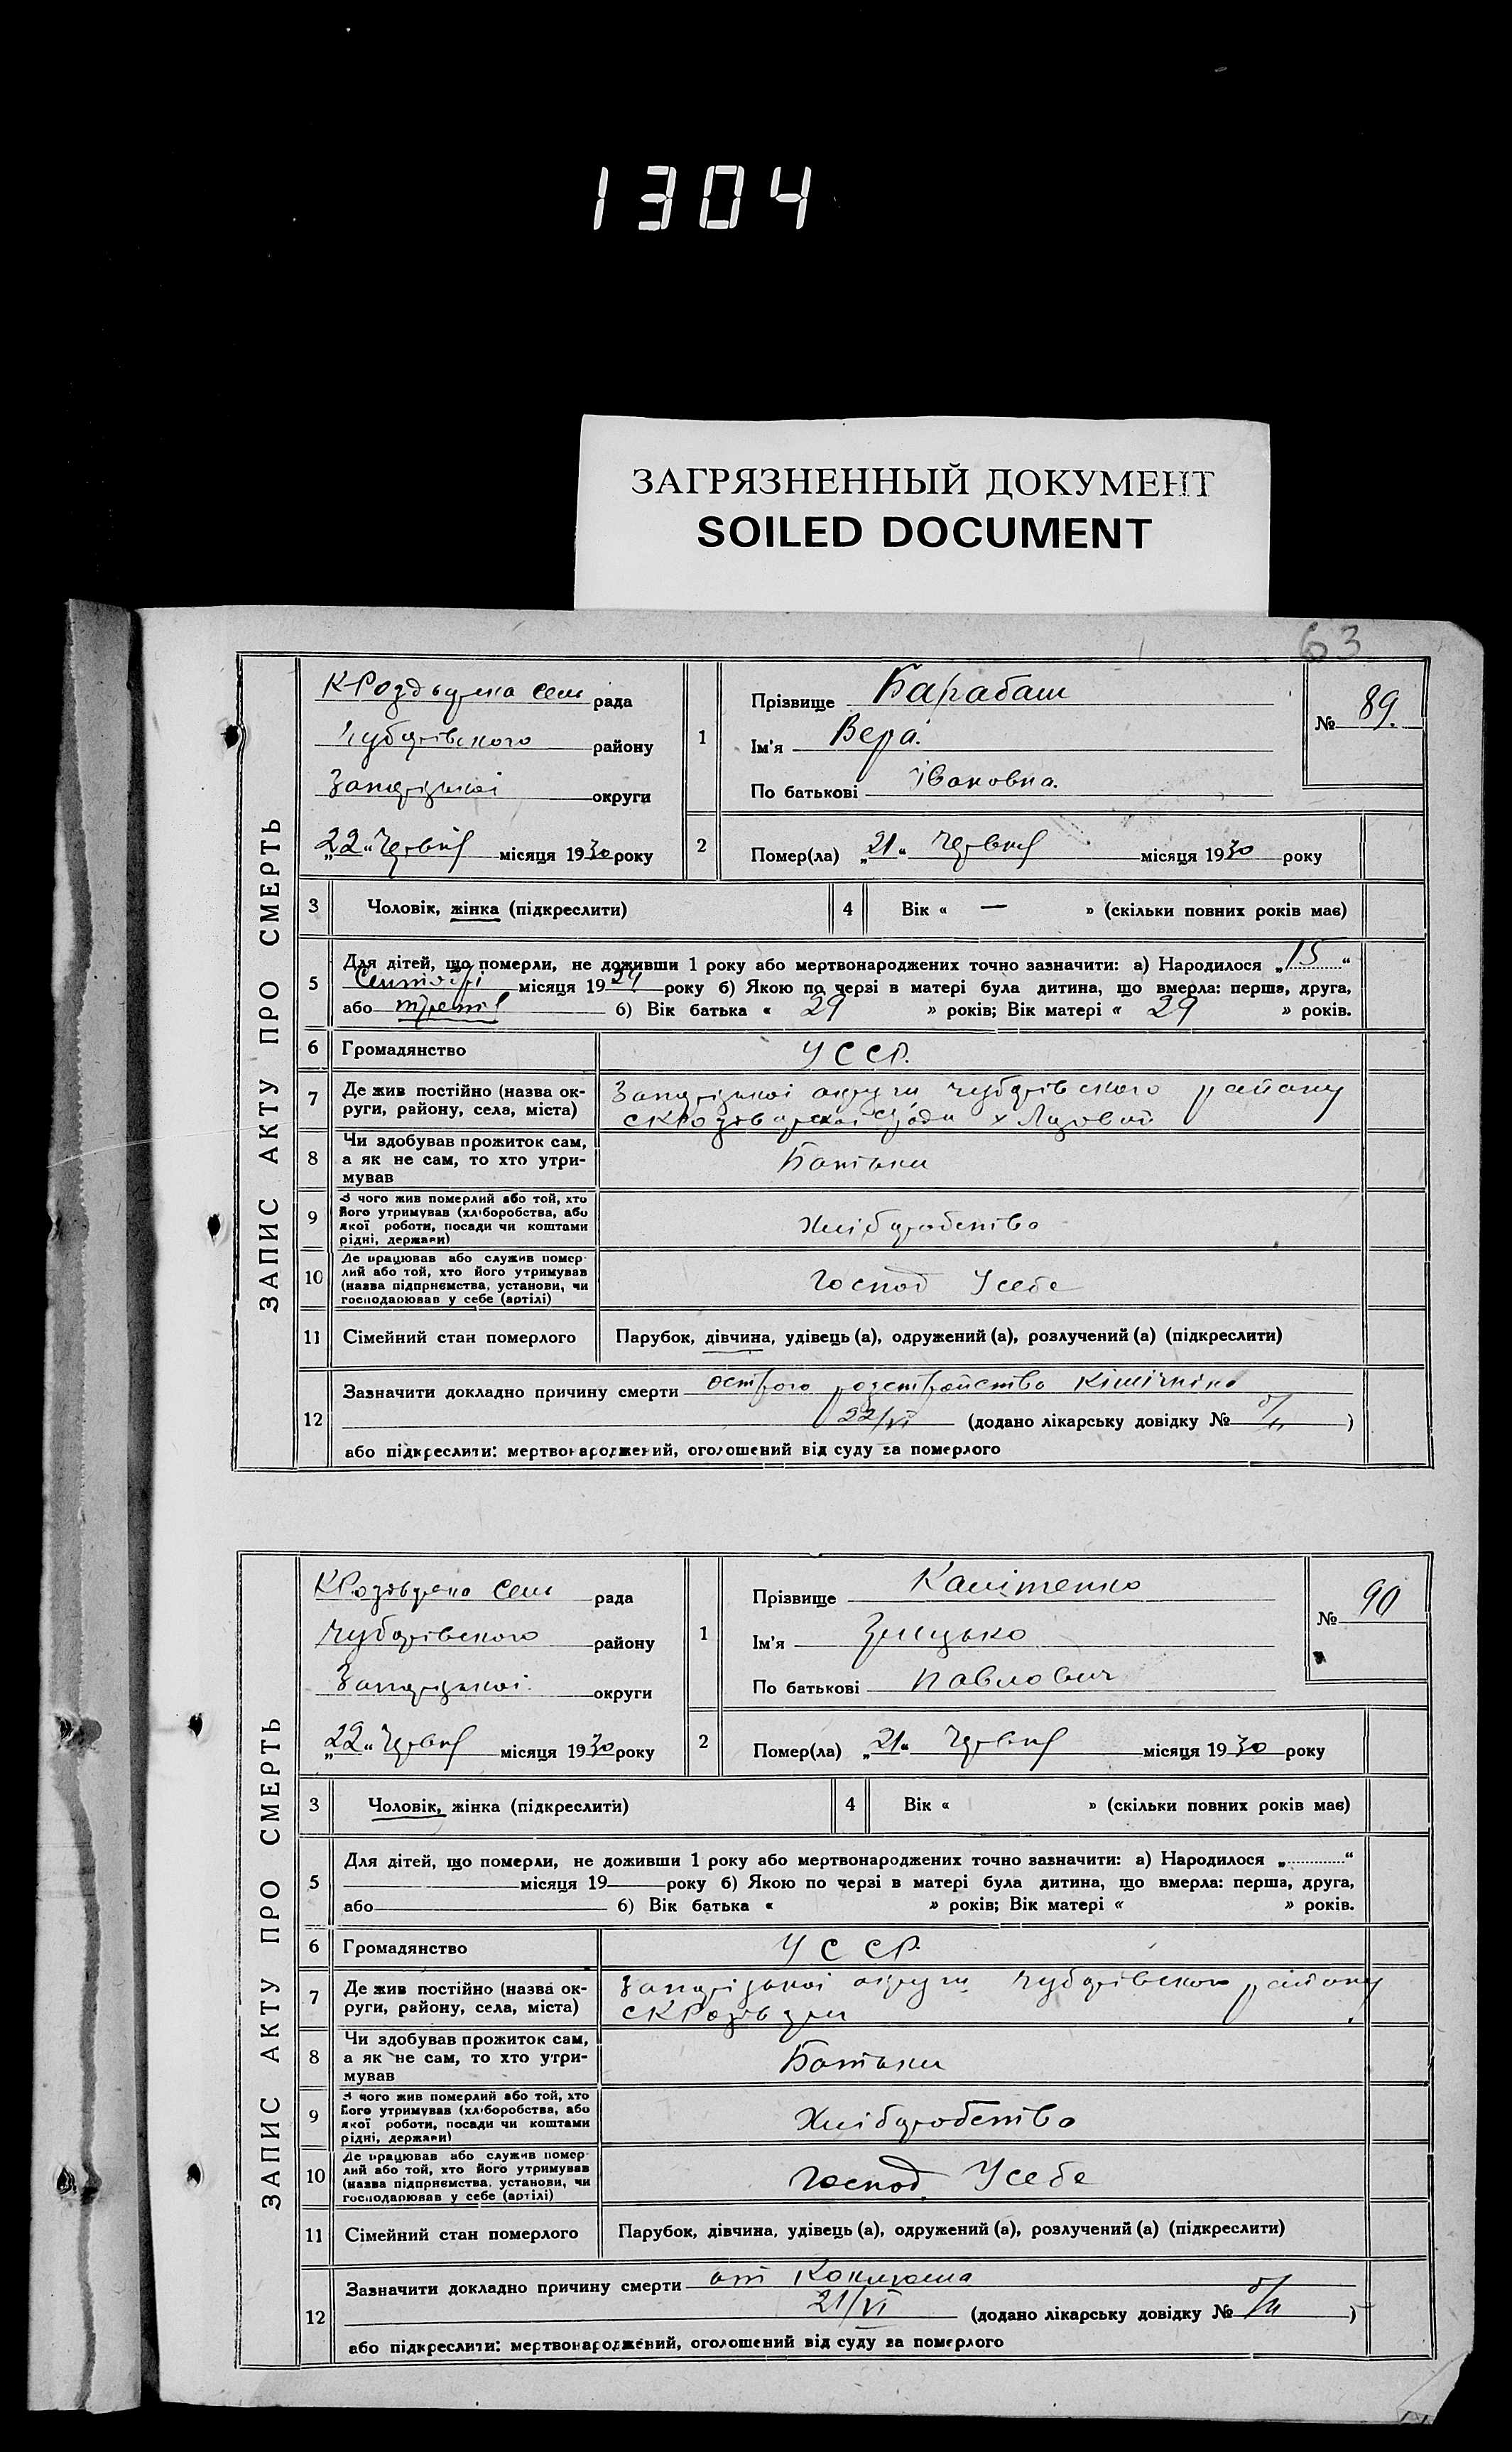 1304
ЗАГРЯЗНЕННЫЙ ДОКУМЕНТ
SOILED DOCUMENT
63
ЗАПИС АКТУ ПРО СМЕРТЬ
рада
Чубарівського району
Запорізької округи
„22“ Червня місяця 1930 року
1
Прізвище Барабаш
Ім'я Вера
По батькові Івановна.
№ 89.
2 Помер(ла) „21“ Червня місяця 1930 року
3 Чоловік, жінка (підкреслити)
4 Вік « — » (скільки повних років має)
5 Для дітей, що померли, не доживши 1 року або мертвонароджених точно зазначити: а) Народилося „15“
місяця 1929 року б) Якою по черзі в матері була дитина, що вмерла: перша, друга,
або 6) Вік батька « 29 » років; Вік матері « 29 » років.
6 Громадянство УССР.
7 Де жив постійно (назва ок-
руги, району, села, міста)
Запорізької округи Чубарівського району
8 Чи здобував прожиток сам,
а як не сам, то хто утри-
мував
Батьки
9 З чого жив померлий або той, хто
його утримував (хліборобства, або
якої роботи, посади чи коштами
рідні, держави)
Хліборобство
10 Де працював або служив помер-
лий або той, хто його утримував
(назва підприємства, установи, чи
господарював у себе (артілі)
Господ Усебе
11 Сімейний стан померлого
Парубок, дівчина, удівець (а), одружений (а), розлучений (а) (підкреслити)
12 Зазначити докладно причину смерти острого розстройство
22/VI (додано лікарську довідку № )
або підкреслити: мертвонароджений, оголошений від суду за померлого
ЗАПИС АКТУ ПРО СМЕРТЬ
рада
Чубарівського району
Запорізької округи
„22“ Червня місяця 1930 року
1
Прізвище
Ім'я Грицько
По батькові Павлович
№ 90
2 Помер(ла) „21“ Червня місяця 1930 року
3 Чоловік, жінка (підкреслити)
4 Вік « » (скільки повних років має)
5 Для дітей, що померли, не доживши 1 року або мертвонароджених точно зазначити: а) Народилося „ “
місяця 19 року б) Якою по черзі в матері була дитина, що вмерла: перша, друга,
або 6) Вік батька « » років; Вік матері « » років.
6 Громадянство УССР.
7 Де жив постійно (назва ок-
руги, району, села, міста)
Запорізької округи Чубарівського району
8 Чи здобував прожиток сам,
а як не сам, то хто утри-
мував
Батьки
9 З чого жив померлий або той, хто
його утримував (хліборобства, або
якої роботи, посади чи коштами
рідні, держави)
Хліборобство
10 Де працював або служив помер-
лий або той, хто його утримував
(назва підприємства, установи, чи
господарював у себе (артілі)
Господ. Усебе
11 Сімейний стан померлого
Парубок, дівчина, удівець (а), одружений (а), розлучений (а) (підкреслити)
12 Зазначити докладно причину смерти от Коклюша
21/VI (додано лікарську довідку № )
або підкреслити: мертвонароджений, оголошений від суду за померлого